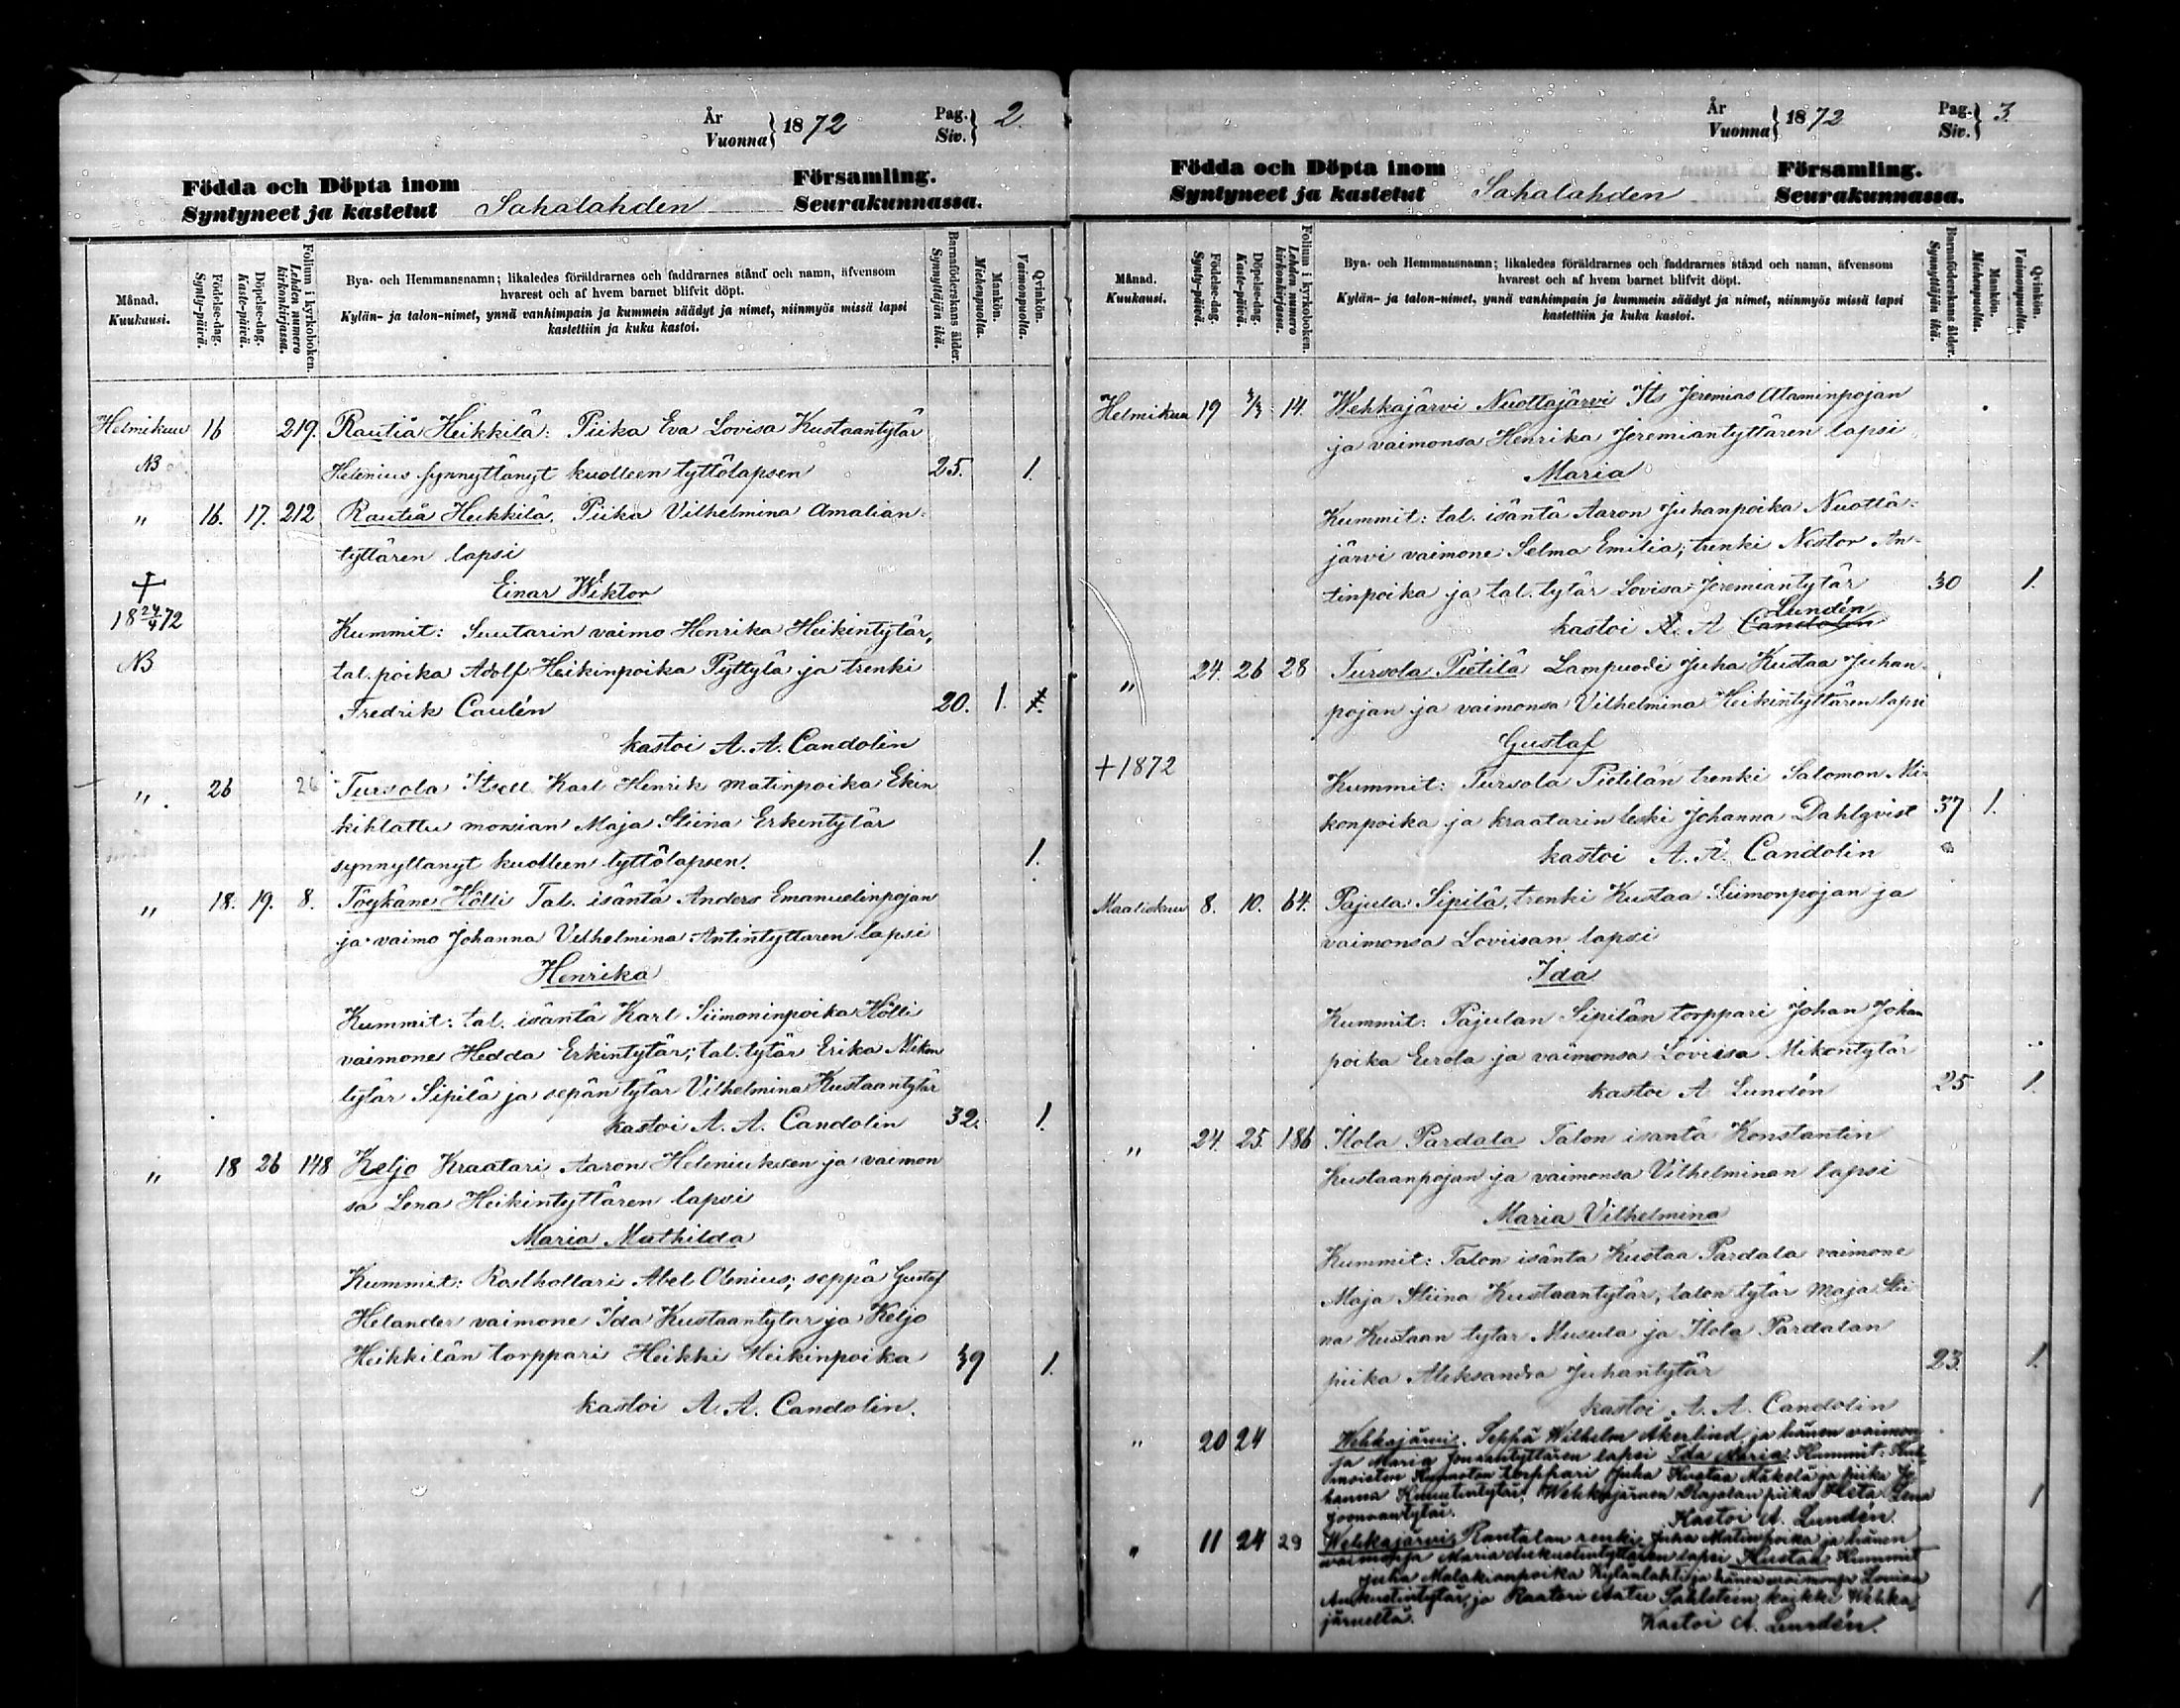 År
Vuonna } 1872
Pag.
Siv. } 2.
Födda och Döpta inom
Syntyneet ja kastetut Sahalahden
Församling.
Seurakunnassa.
Månad.
Kuukausi.
Födelse-dag.
Synty-päivä.
Döpelse-dag.
Kaste-päivä.
Folium i kyrkoboken.
Lehden numero kirkonkirjassa.
Bya- och Hemmansnamn; likaledes föräldrarnes och faddrarnes stånd och namn, äfvensom
hvarest och af hvem barnet blifvit döpt.
Kylän- ja talon-nimet, ynnä vanhimpain ja kummein säädyt ja nimet, niinmyös missä lapsi
kastettiin ja kuka kastoi.
Barnaföderskans ålder.
Synnyttäjän ikä.
Mankön.
Miehenpuolta.
Qvinkön.
Vaimonpuolta.
Helmikuu 16 219. Rautiä Heikkilä: Piika Eva Lovisa Kustaantytär
NB Helenius synnyttänyt kuolleen tyttölapsen 25. 1.
" 16. 17. 212 Rautiä Heikkilä. Piika Vilhelmina Amalian-
tyttären lapsi
Einar Wiktor
† 18 24/4 72
Kummit: Suutarin vaimo Henrika Heikintytär,
NB tal. poika Adolf Heikinpoika Pyttylä ja trenki
Fredrik Caulén 20. 1.
kastoi A. A. Candolin
". 26 26 Tursola Itsell. Karl Henrik Matinpoika Ekin
kihlattu morsian Maja Stiina Erkintytär
synnyttanyt kuolleen tyttölapsen. 1.
" 18. 19. 8. Töykäne Hölli Tal. isäntä Anders Emanuelinpojan
ja vaimo Johanna Vilhelmina Antintyttaren lapsi
Henrika
Kummit: tal. isäntä Karl Siimoninpoika Hölli
vaimone Hedda Erkintytär; tal. tytär Erika Mikon
tytär Sipilä ja sepän tytär Vilhelmina Kustaantytär
kastoi A. A. Candolin 32. 1.
" 18 26 148 Keljo Kraatari Aaron Heleniuksen ja vaimon
sa Lena Heikintyttären lapsi
Maria Mathilda
Kummit: Rostkollari Abel Olenius; seppä Gustaf
Helander vaimone Ida Kustaantytar ja Keljo
Heikkilän torppari Heikki Heikinpoika 39 1.
kastoi A. A. Candolin.
År
Vuonna } 1872
Pag.
Siv. } 3.
Födda och Döpta inom
Syntyneet ja kastetut Sahalahden
Församling.
Seurakunnassa.
Månad.
Kuukausi.
Födelse-dag.
Synty-päivä.
Döpelse-dag.
Kaste-päivä.
Folium i kyrkoboken.
Lehden numero kirkonkirjassa.
Bya- och Hemmansnamn; likaledes föräldrarnes och faddrarnes stånd och namn, äfvensom
hvarest och af hvem barnet blifvit döpt.
Kylän- ja talon-nimet, ynnä vanhimpain ja kummein säädyt ja nimet, niinmyös missä lapsi
kastettiin ja kuka kastoi.
Barnaföderskans ålder.
Synnyttäjän ikä.
Mankön.
Miehenpuolta.
Qvinkön.
Vaimonpuolta.
Helmikuu 19 3/3 14. Wehkajärvi Nuottajärvi Its Jeremias Ataminpojan
ja vaimonsa Henrika Jeremiantyttären lapsi
Maria
Kummit: tal. isäntä Aaron Juhanpoika Nuotta-
järvi vaimone Selma Emilia; trenki Nestor An-
tinpoika ja tal. tytär Lovisa Jeremiantytär 30 1.
kastoi A. A Candolin Lundén
" 24. 26 28 Tursola Pietilä Lampuodi Juha Kustaa Juhan
pojan ja vaimonsa Vilhelmina Heikintyttären lapsi
Gustaf
+1872
Kummit: Tursola Pietilän trenki Salomon Mi-
konpoika ja kraatarin leski Johanna Dahlqvist 37 1.
kastoi A. A. Candolin
Maaliskuu 8. 10. 64. Pajula Sipilä, trenki Kustaa Siimonpojan ja
vaimonsa Loviisan lapsi
Ida
Kummit: Pajulan Sipilän torppari Johan Johan
poika Eerola ja vaimonsa Loviisa Mikontytär
kastoi A Lundén 25 1.
" 24. 25. 186 Ilola Pardala Talon isantä Konstantin
Kustaanpojan ja vaimonsa Vilhelminan lapsi
Maria Vilhelmina
Kummit: Talon isänta Kustaa Pardala vaimone
Maja Stiina Kustaantytär; talon tytär Maja Stii
na Kustaan tytar Musula ja Ilola Pardalan
piika Aleksandra Juhantytär 23. 1.
kastoi A. A. Candolin
" 20 24 Wehkajärvi. Seppä Wilhelm Åkerlind ja hänen vaimon
ja Maria Joonantyttären lapsi Ida Maria Kummit:
torppari Juha Kustaa Mäkelä ja piika Jo
hanna Wehkajärven Rajalan piika Heta Lena 1
Joonaantytär. Kastoi A. Lundén.
" 11 24 29 Wehkajärvi Rantalan renki Juha Matinpoika ja hänen
vaimonsa Maria Aukustintyttären lapsi Kustaa Kummit
Juha Malakianpoika Kylänlahti ja hänen vaimonsa Lovisa
Aukustintytär, ja Raatari Aatu Sahlsteen kaikki Wehka 1
järveltä. Kastoi A. Lundén.